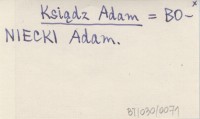 Ksiądz Adam = BO-
NIECKI Adam.
BJ/030/0071